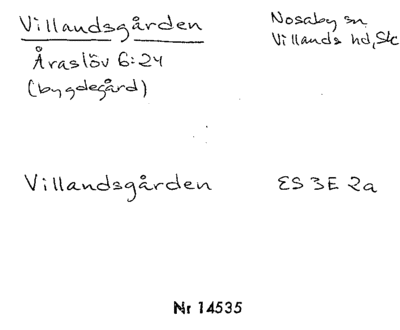 Villandsgården
Åraslöv 6:24
(bygdegård)
Nosaby sn
Villands hd, Skc
Villandsgården
ES 3E 2a
Nr 14535